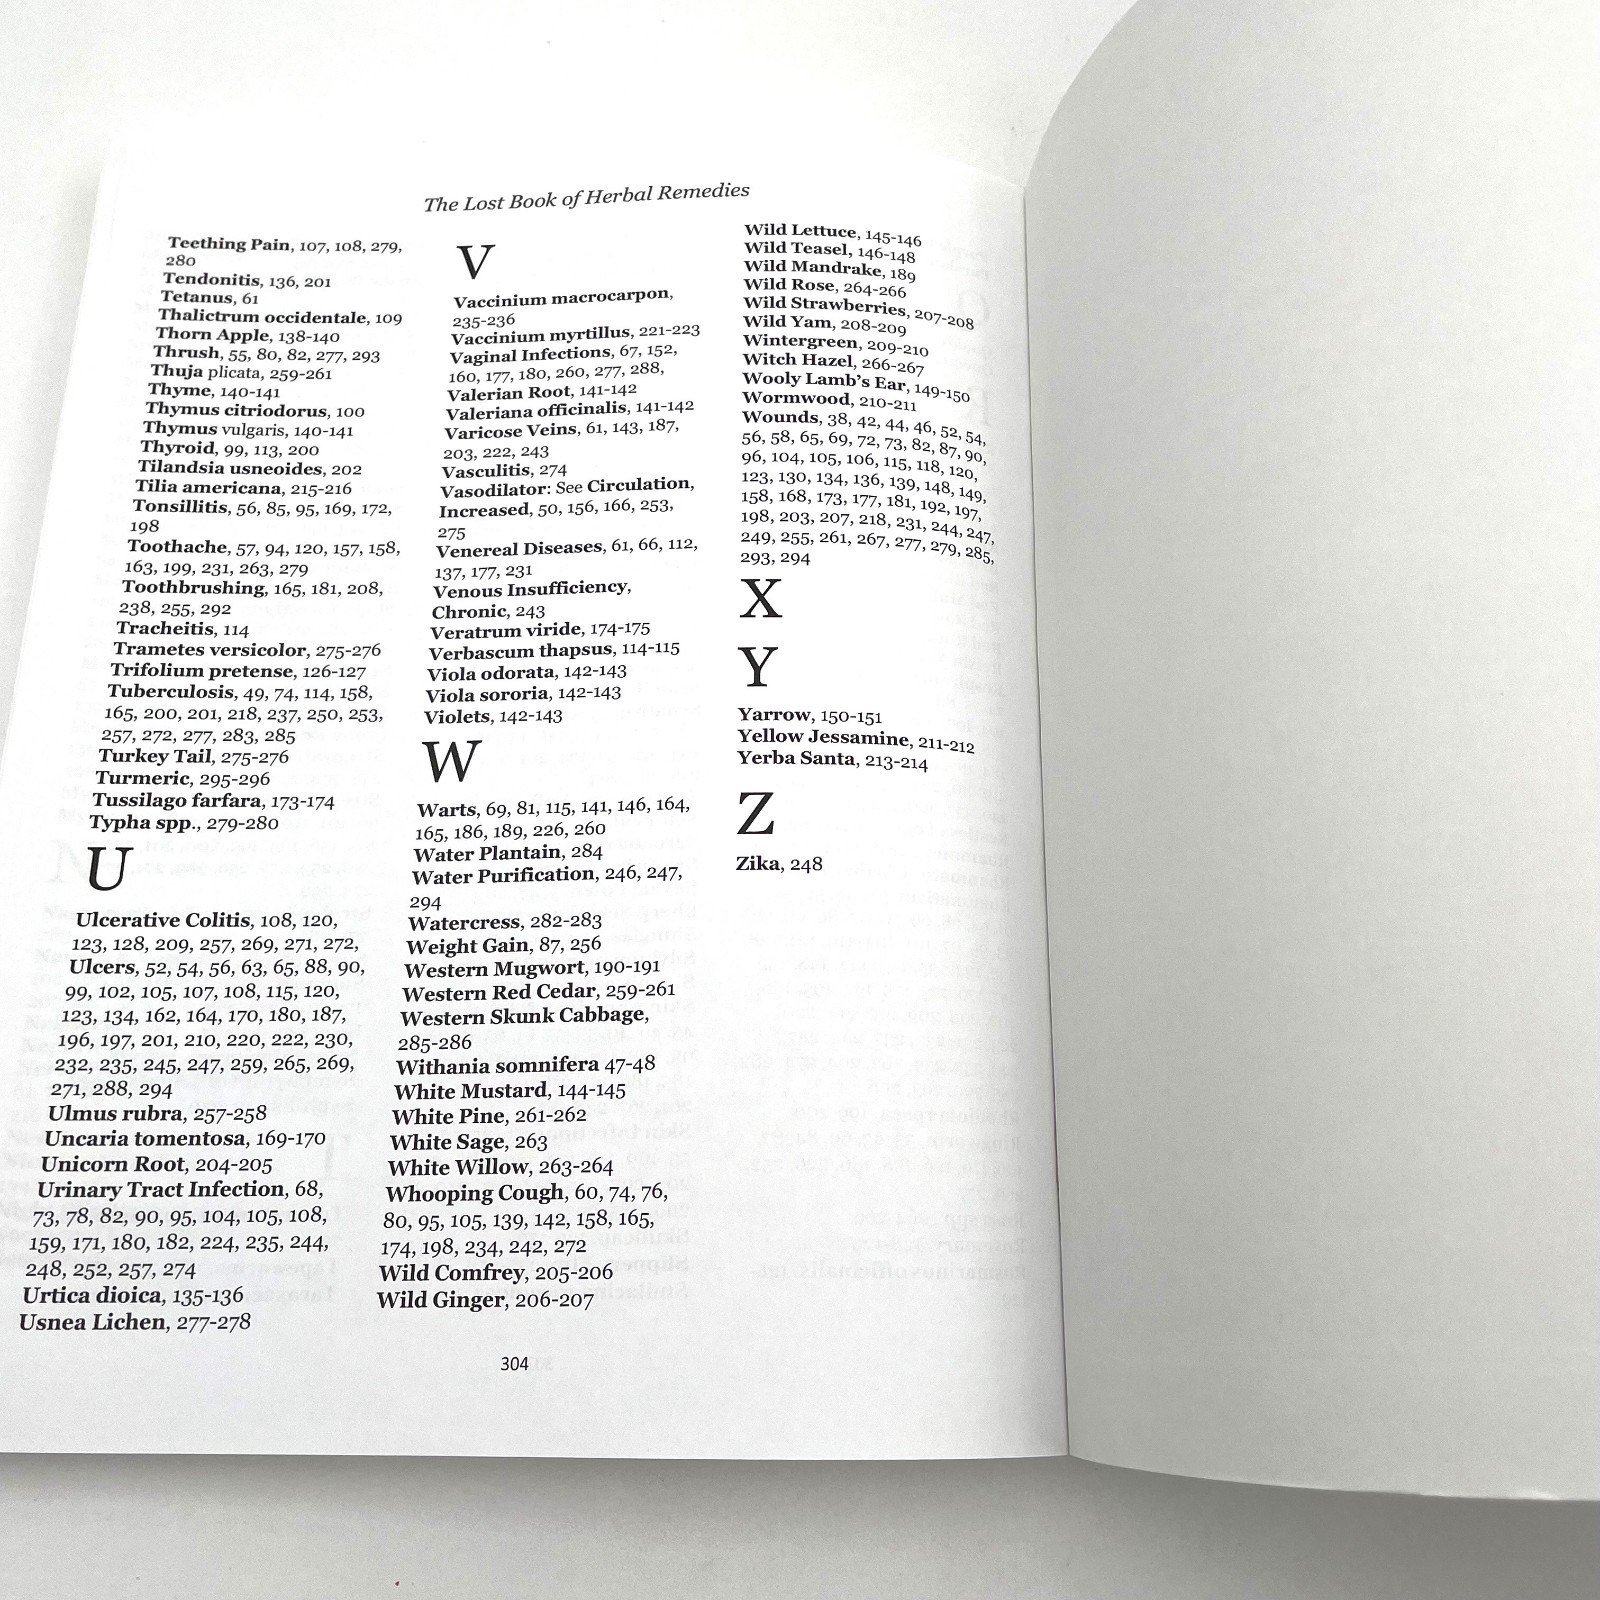 The Lost Book of Herbal Remedies
Teething Pain, 107, 108, 279,
280
Tendonitis, 136, 201
Tetanus, 61
Thalictrum occidentale, 109
Thorn Apple, 138-140
Thrush, 55, 80, 82, 277, 293
Thuja plicata, 259-261
Thyme, 140-141
Thymus citriodorus, 100
Thymus vulgaris, 140-141
Thyroid, 99, 113, 200
Tilandsia usneoides, 202
Tilia americana, 215-216
Tonsillitis, 56, 85, 95, 169, 172,
198
Toothache, 57, 94, 120, 157, 158,
163, 199, 231, 263, 279
Toothbrushing, 165, 181, 208,
238, 255, 292
Tracheitis, 114
Trametes versicolor, 275-276
Trifolium pretense, 126-127
Tuberculosis, 49, 74, 114, 158,
165, 200, 201, 218, 237, 250, 253,
257, 272, 277, 283, 285
Turkey Tail, 275-276
Turmeric, 295-296
Tussilago farfara, 173-174
Typha spp., 279-280
U
Ulcerative Colitis, 108, 120,
123, 128, 209, 257, 269, 271, 272,
Ulcers, 52, 54, 56, 63, 65, 88, 90,
99, 102, 105, 107, 108, 115, 120,
123, 134, 162, 164, 170, 180, 187,
196, 197, 201, 210, 220, 222, 230,
232, 235, 245, 247, 259, 265, 269,
271, 288, 294
Ulmus rubra, 257-258
Uncaria tomentosa, 169-170
Unicorn Root, 204-205
Urinary Tract Infection, 68,
73, 78, 82, 90, 95, 104, 105, 108,
159, 171, 180, 182, 224, 235, 244,
248, 252, 257, 274
Urtica dioica, 135-136
Usnea Lichen, 277-278
V
Vaccinium macrocarpon,
235-236
Vaccinium myrtillus, 221-223
Vaginal Infections, 67, 152,
160, 177, 180, 260, 277, 288,
Valerian Root, 141-142
Valeriana officinalis, 141-142
Varicose Veins, 61, 143, 187,
203, 222, 243
Vasculitis, 274
Vasodilator: See Circulation,
Increased, 50, 156, 166, 253,
275
Venereal Diseases, 61, 66, 112,
137, 177, 231
Venous Insufficiency,
Chronic, 243
Veratrum viride, 174-175
Verbascum thapsus, 114-115
Viola odorata, 142-143
Viola sororia, 142-143
Violets, 142-143
W
Warts, 69, 81, 115, 141, 146, 164,
165, 186, 189, 226, 260
Water Plantain, 284
Water Purification, 246, 247,
294
Watercress, 282-283
Weight Gain, 87, 256
Western Mugwort, 190-191
Western Red Cedar, 259-261
Western Skunk Cabbage,
285-286
Withania somnifera 47-48
White Mustard, 144-145
White Pine, 261-262
White Sage, 263
White Willow, 263-264
Whooping Cough, 60, 74, 76,
80, 95, 105, 139, 142, 158, 165,
174, 198, 234, 242, 272
Wild Comfrey, 205-206
Wild Ginger, 206-207
Wild Lettuce, 145-146
Wild Teasel, 146-148
Wild Mandrake, 189
Wild Rose, 264-266
Wild Strawberries, 207-208
Wild Yam, 208-209
Wintergreen, 209-210
Witch Hazel, 266-267
Wooly Lamb's Ear, 149-150
Wormwood, 210-211
Wounds, 38, 42, 44, 46, 52, 54,
56, 58, 65, 69, 72, 73, 82, 87, 90,
96, 104, 105, 106, 115, 118, 120,
123, 130, 134, 136, 139, 148, 149,
158, 168, 173, 177, 181, 192, 197,
198, 203, 207, 218, 231, 244, 247,
249, 255, 261, 267, 277, 279, 285,
293, 294
X
Y
Yarrow, 150-151
Yellow Jessamine, 211-212
Yerba Santa, 213-214
Z
Zika, 248
304